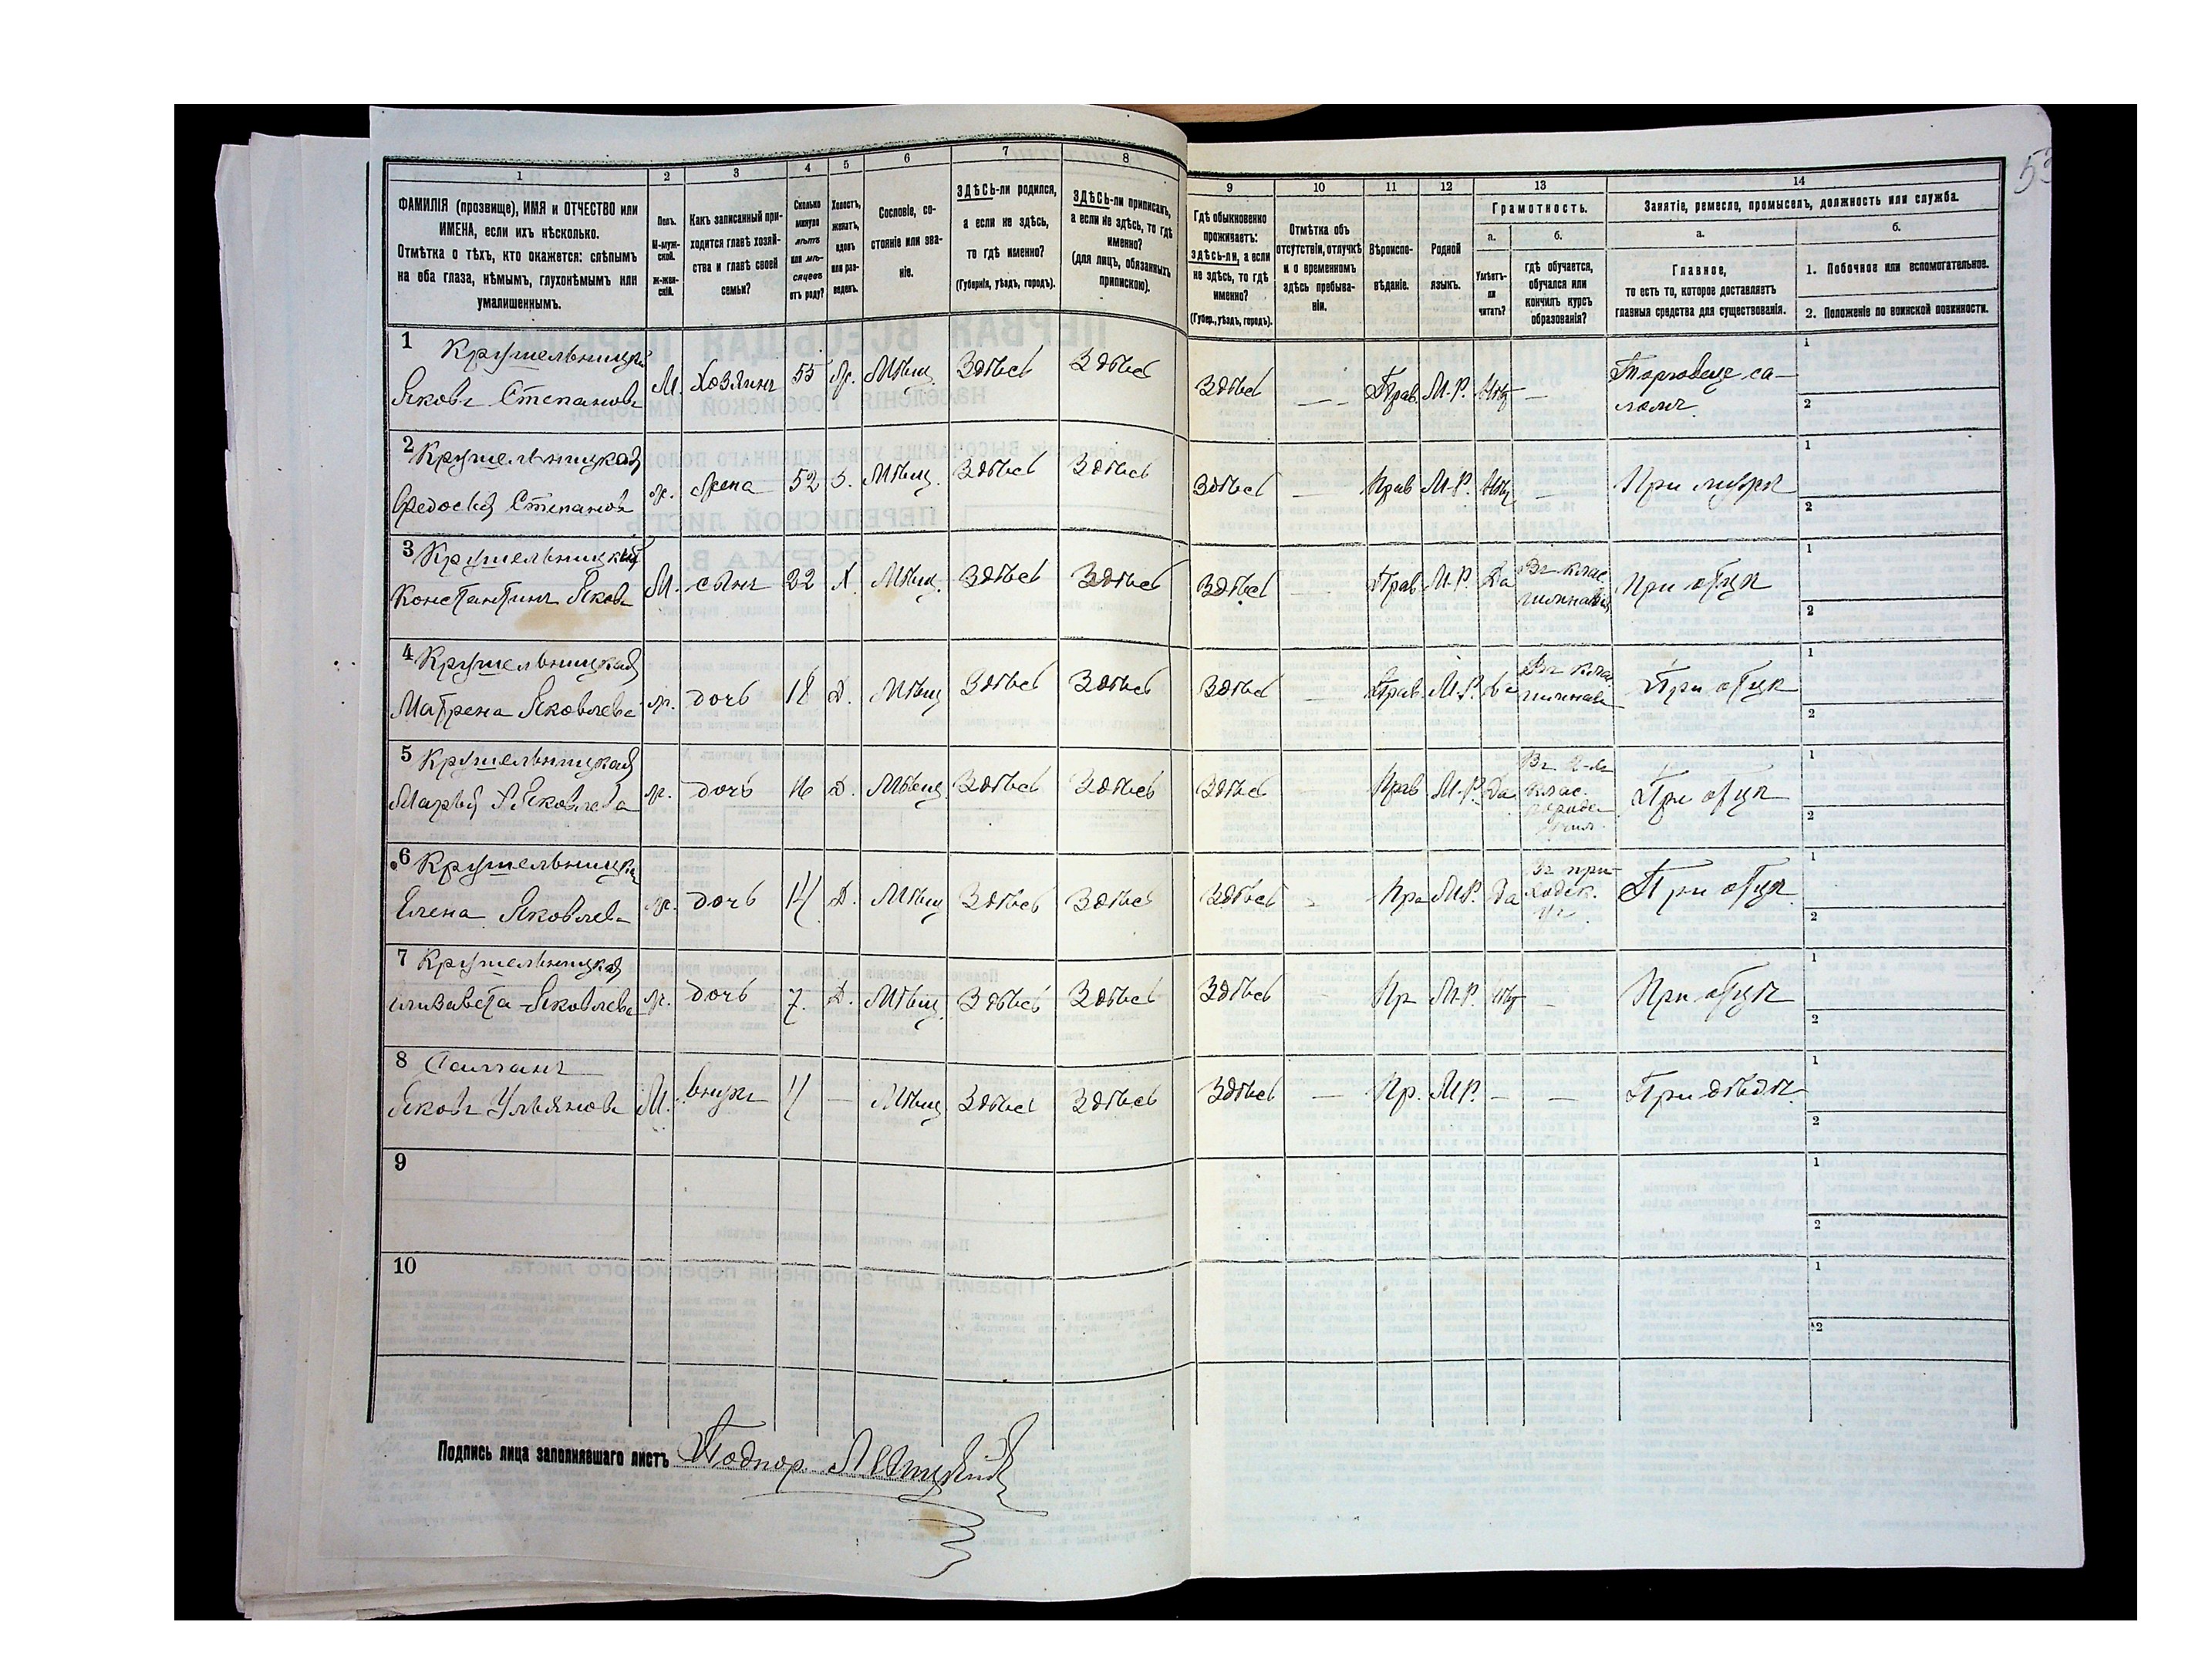 53
1 2 3 4 5 6 7 8 9 10 11 12 13 14
ФАМИЛІЯ (прозвище), ИМЯ и ОТЧЕСТВО или
ИМЕНА, если ихъ нѣсколько.
Отмѣтка о тѣхъ, кто окажется: слѣпымъ
на оба глаза, нѣмымъ, глухонѣмымъ или
умалишеннымъ.
Полъ.
М-муж-
ской.
Ж-жен-
скій.
Какъ записанный при-
ходится главѣ хозяй-
ства и главѣ своей
семьи?
Сколько
минуло
лѣтъ
или мѣ-
сяцевъ
отъ роду?
Холостъ,
женатъ,
вдовъ
или раз-
веденъ.
Сословіе, со-
стояніе или зва-
ніе.
ЗДѢСЬ-ли родился,
а если не здѣсь,
то гдѣ именно?
(Губернія, уѣздъ, городъ).
ЗДѢСЬ-ли приписанъ,
а если не здѣсь, то гдѣ
именно?
(для лицъ, обязанныхъ
припискою).
Гдѣ обыкновенно
проживаетъ:
здѣсь-ли, а если
не здѣсь, то гдѣ
именно?
(Губер., уѣздъ, городъ).
Отмѣтка объ
отсутствіи, отлучкѣ
и о временномъ
здѣсь пребыва-
ніи.
Вѣроиспо-
вѣданіе.
Родной
языкъ.
Грамотность.
а.
Умѣетъ-
ли
читать?
б.
гдѣ обучается,
обучался или
кончилъ курсъ
образованія?
Занятіе, ремесло, промыселъ, должность или служба.
а.
Главное,
то есть то, которое доставляетъ
главныя средства для существованія.
б.
1. Побочное или вспомогательное.
2. Положеніе по воинской повинности.
1 Крушельницкій
Яковъ Степановъ М. Хозяинъ 55 Ж. Мѣщ. Здѣсь Здѣсь Здѣсь — Прав. М.Р. Нѣтъ — Торговецъ са-
ломъ. 1 2
2 Крушельницкая
Ѳедосія Степанов ж. Жена 52 З. Мѣщ. Здѣсь Здѣсь Здѣсь — Прав М.Р. Нѣтъ — При мужѣ 1 2
3 Крушельницкій
Константинъ Яков М. сынъ 22 Х. Мѣщ. Здѣсь Здѣсь Здѣсь — Прав. М.Р. Да Въ клас.
гимназіи При отцѣ 1 2
4 Крушельницкая
Матрена Яковлева ж. дочь 18 Д. Мѣщ Здѣсь Здѣсь Здѣсь — Прав. М.Р. Да Въ клас.
гимназ При отцѣ 1 2
5 Крушельницкая
Марія Яковлева ж. дочь 16 Д. Мѣщ. Здѣсь Здѣсь Здѣсь — Прав. М.Р. Да Въ 2-м
клас.
При отцѣ 1 2
6 Крушельницка
Елена Яковлева ж. дочь 14 Д. Мѣщ Здѣсь Здѣсь Здѣсь — Пра М.Р. Да Въ при-
ходск.
При отцѣ 1 2
7 Крушельницкая
Елизавета Яковлева ж. дочь 7. Д. Мѣщ. Здѣсь Здѣсь Здѣсь — Пр М.Р. Нѣтъ — При отцѣ 1 2
8
Яковъ Ульяновъ М. внукъ 4 — Мѣщ Здѣсь Здѣсь Здѣсь — Пр. М.Р. — — При дѣдѣ 1 2
9 1 2
10 1 2
Подпись лица заполнявшаго листъ Подпор.